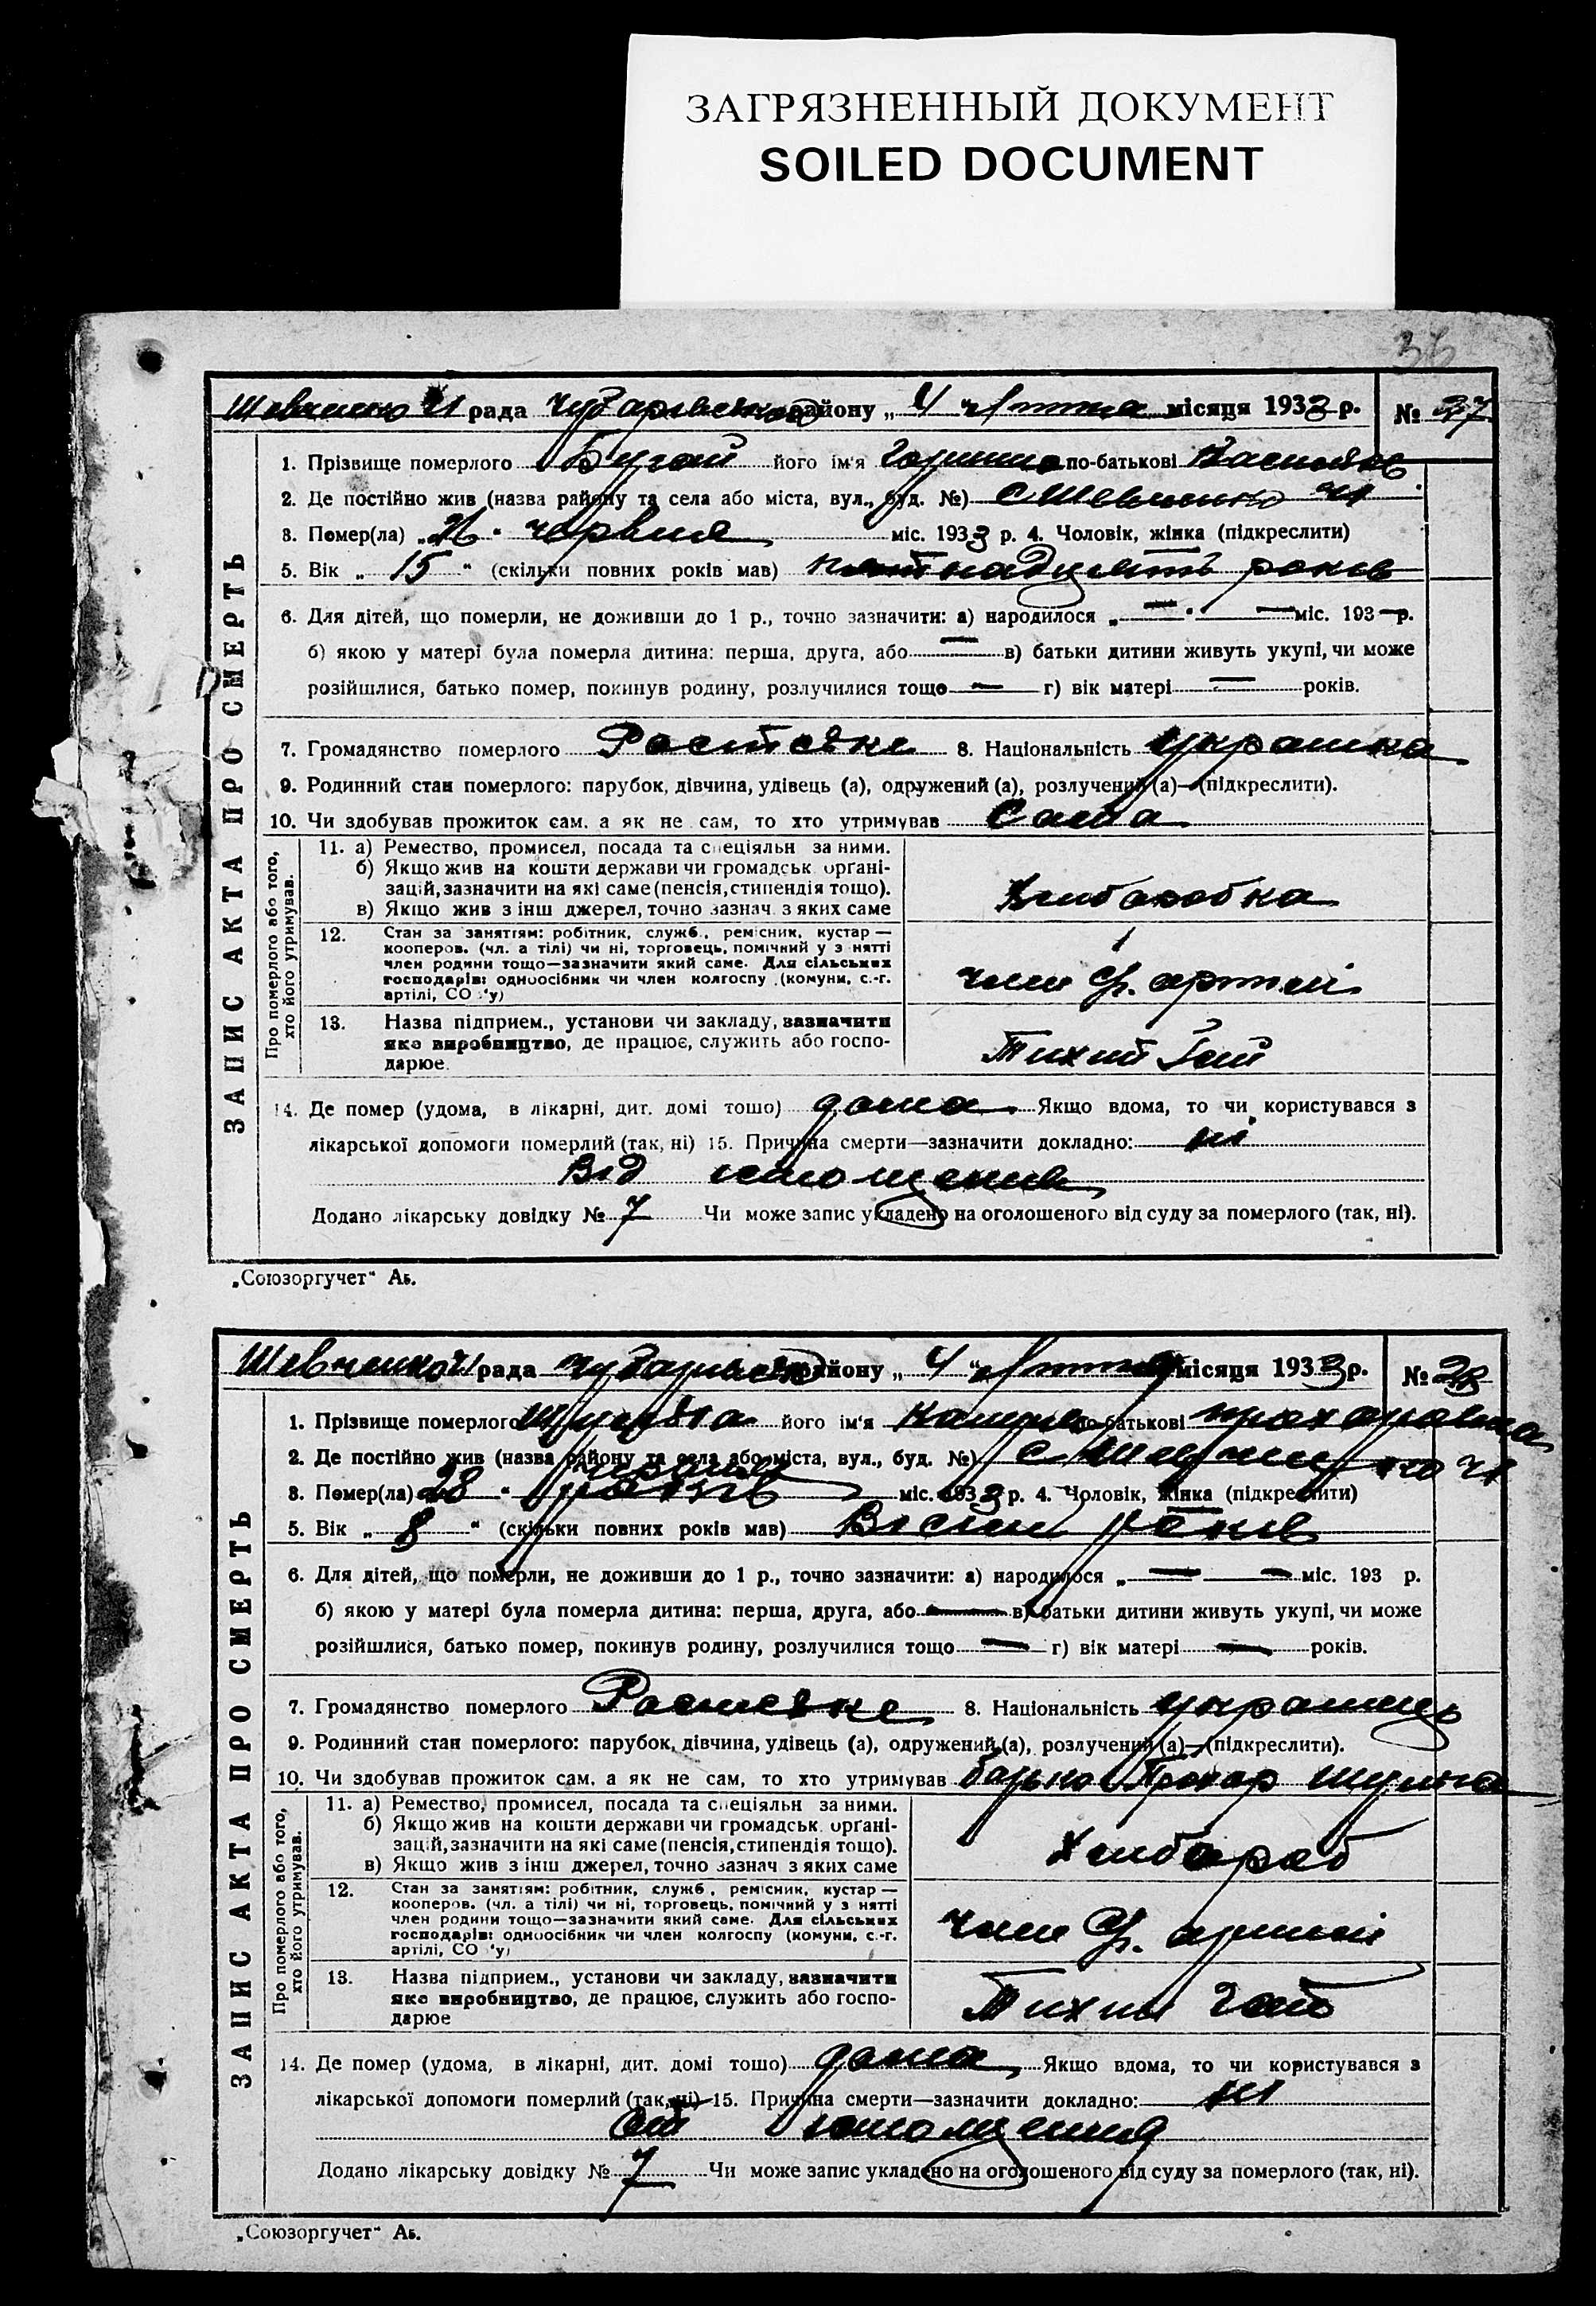 ЗАГРЯЗНЕННЫЙ ДОКУМЕНТ
SOILED DOCUMENT
36
рада району „ 4 “ місяця 1933 р. № 37
ЗАПИС АКТА ПРО СМЕРТЬ
1. Прізвище померлого Бугай його ім'я по-батькові
2. Де постійно жив (назва району та села або міста, вул., буд. №)
3. Помер(ла) „26“ червня міс. 1933 р. 4. Чоловік, жінка (підкреслити)
5. Вік „ 15 “ (скільки повних років мав) пятнадцять років
6. Для дітей, що померли, не доживши до 1 р., точно зазначити: а) народилося „ — “ — міс. 193 — р.
б) якою у матері була померла дитина: перша, друга, або — в) батьки дитини живуть укупі, чи може
розійшлися, батько помер, покинув родину, розлучилися тощо — г) вік матері — років.
7. Громадянство померлого 8. Національність українка
9. Родинний стан померлого: парубок, дівчина, удівець (а), одружений (а), розлучений (а)—(підкреслити).
10. Чи здобував прожиток сам, а як не сам, то хто утримував Сама
Про померлого або того, хто його утримував.
11. а) Ремество, промисел, посада та спеціяльн за ними.
б) Якщо жив на кошти держави чи громадськ. органі-
зацій, зазначити на які саме (пенсія, стипендія тощо).
в) Якщо жив з інш джерел, точно зазнач. з яких саме
Хлиборобка
12. Стан за заняттям: робітник, служб., ремісник, кустар —
кооперов. (чл. а тілі) чи ні, торговець, помічний у з нятті
член родини тощо—зазначити який саме. Для сільських
господарів: одноосібник чи член колгоспу (комуни, с.-г.
артілі, СО 'у)
член с.г. артилі
13. Назва підприєм., установи чи закладу, зазначити
яке виробництво, де працює, служить або госпо-
дарює.
Тихий Гай
14. Де помер (удома, в лікарні, дит. домі тощо) дома Якщо вдома, то чи користувався з
лікарської допомоги померлий (так, ні) 15. Причина смерти—зазначити докладно: ні
Від истощения
Додано лікарську довідку № 7 Чи може запис укладено на оголошеного від суду за померлого (так, ні).
„Союзоргучет“ Аь.
рада району „ 4 “ місяця 1933 р. № 38
ЗАПИС АКТА ПРО СМЕРТЬ
1. Прізвище померлого його ім'я по-батькові
2. Де постійно жив (назва району та села або міста, вул., буд. №)
червня
3. Помер(ла) 28 “ років міс. 1933 р. 4. Чоловік, жінка (підкреслити)
5. Вік „ 8 “ (скільки повних років мав) Вісім років
6. Для дітей, що померли, не доживши до 1 р., точно зазначити: а) народилося „ — — міс. 193 р.
б) якою у матері була померла дитина: перша, друга, або — в) батьки дитини живуть укупі, чи може
розійшлися, батько помер, покинув родину, розлучилися тощо — г) вік матері — років.
7. Громадянство померлого 8. Національність
9. Родинний стан померлого: парубок, дівчина, удівець (а), одружений (а), розлучений (а)—(підкреслити).
10. Чи здобував прожиток сам, а як не сам, то хто утримував батько Прохар
Про померлого або того, хто його утримував.
11. а) Ремество, промисел, посада та спеціяльн за ними.
б) Якщо жив на кошти держави чи громадськ. органі-
зацій, зазначити на які саме (пенсія, стипендія тощо).
в) Якщо жив з інш джерел, точно зазнач з яких саме
Хлибороб
12. Стан за заняттям: робітник, служб., ремісник, кустар —
кооперов. (чл. а тілі) чи ні, торговець, помічний у з нятті
член родини тощо—зазначити який саме. Для сільських
господарів: одноосібник чи член колгоспу (комуни, с.-г.
артілі, СО 'у)
член с.г. артилі
13. Назва підприєм., установи чи закладу, зазначити
яке виробництво, де працює, служить або госпо-
дарює
Тихий Гай
14. Де помер (удома, в лікарні, дит. домі тощо) дома Якщо вдома, то чи користувався з
лікарської допомоги померлий (так, ні) 15. Причина смерти—зазначити докладно: ні
От истощения
Додано лікарську довідку № 7 Чи може запис укладено на оголошеного від суду за померлого (так, ні).
„Союзоргучет“ Аь.